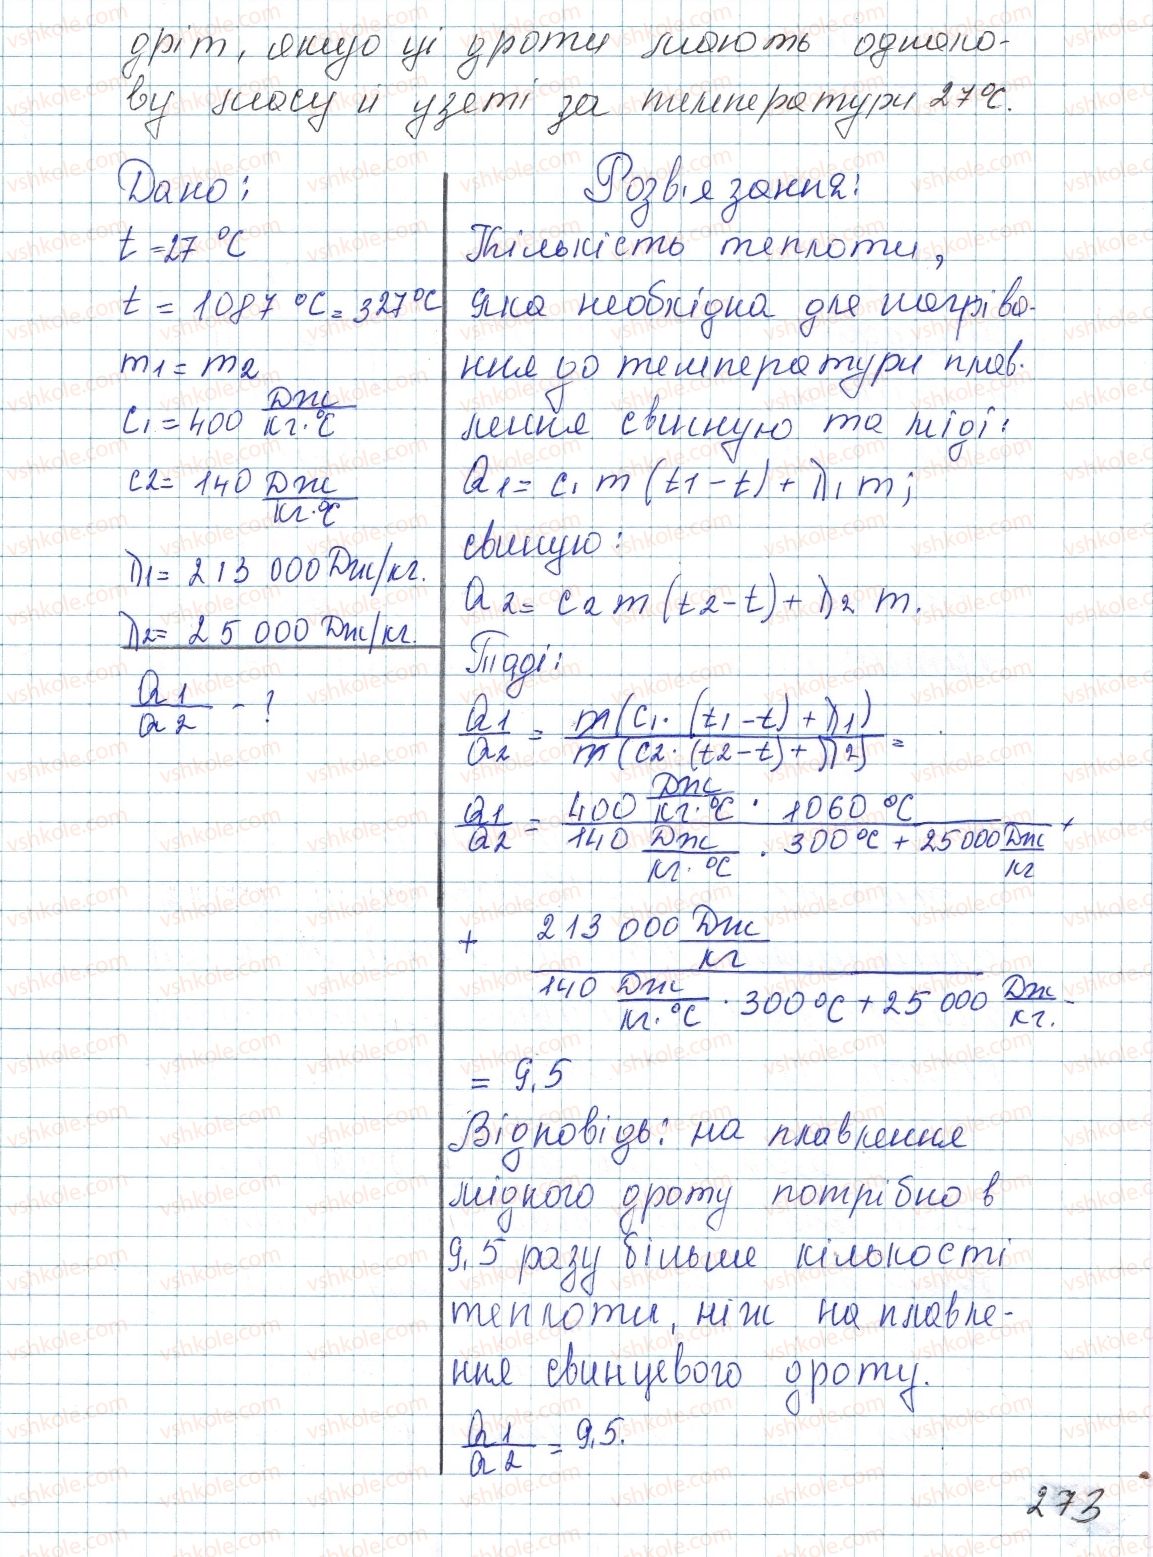 дріт, якщо ці дроти мають однако-
ву масу й узеті за температури 27°С.
Дано:
t = 27 °С
t = 1087 °С = 327°С
m1 = m2
c1 = 400 Дж/кг·°С
c2 = 140 Дж/кг·°С
λ1 = 213 000 Дж/кг.
λ2 = 25 000 Дж/кг.
Q1/Q2 - ?
Розв'язання:
Кількість теплоти,
яка необхідна для нагріва-
ння до температури плав-
лення свинцую та міді:
Q1 = c1 m (t1 - t) + λ1 m;
свинцую:
Q2 = c2 m (t2 - t) + λ2 m.
Тоді:
Q1/Q2 = m(c1 · (t1 - t) + λ1)/m(c2 · (t2 - t) + λ2) =
Q1/Q2 = 400 Дж/кг·°С · 1060 °С/140 Дж/кг·°С · 300°С + 25000 Дж/кг +
+ 213 000 Дж/кг/140 Дж/кг·°С · 300°С + 25 000 Дж/кг. -
= 9,5
Відповідь: на плавлення
мідного дроту потрібно в
9,5 разу більше кількості
теплоти, ніж на плавле-
ння свинцевого дроту.
Q1/Q2 = 9,5.
273
vshkole.com